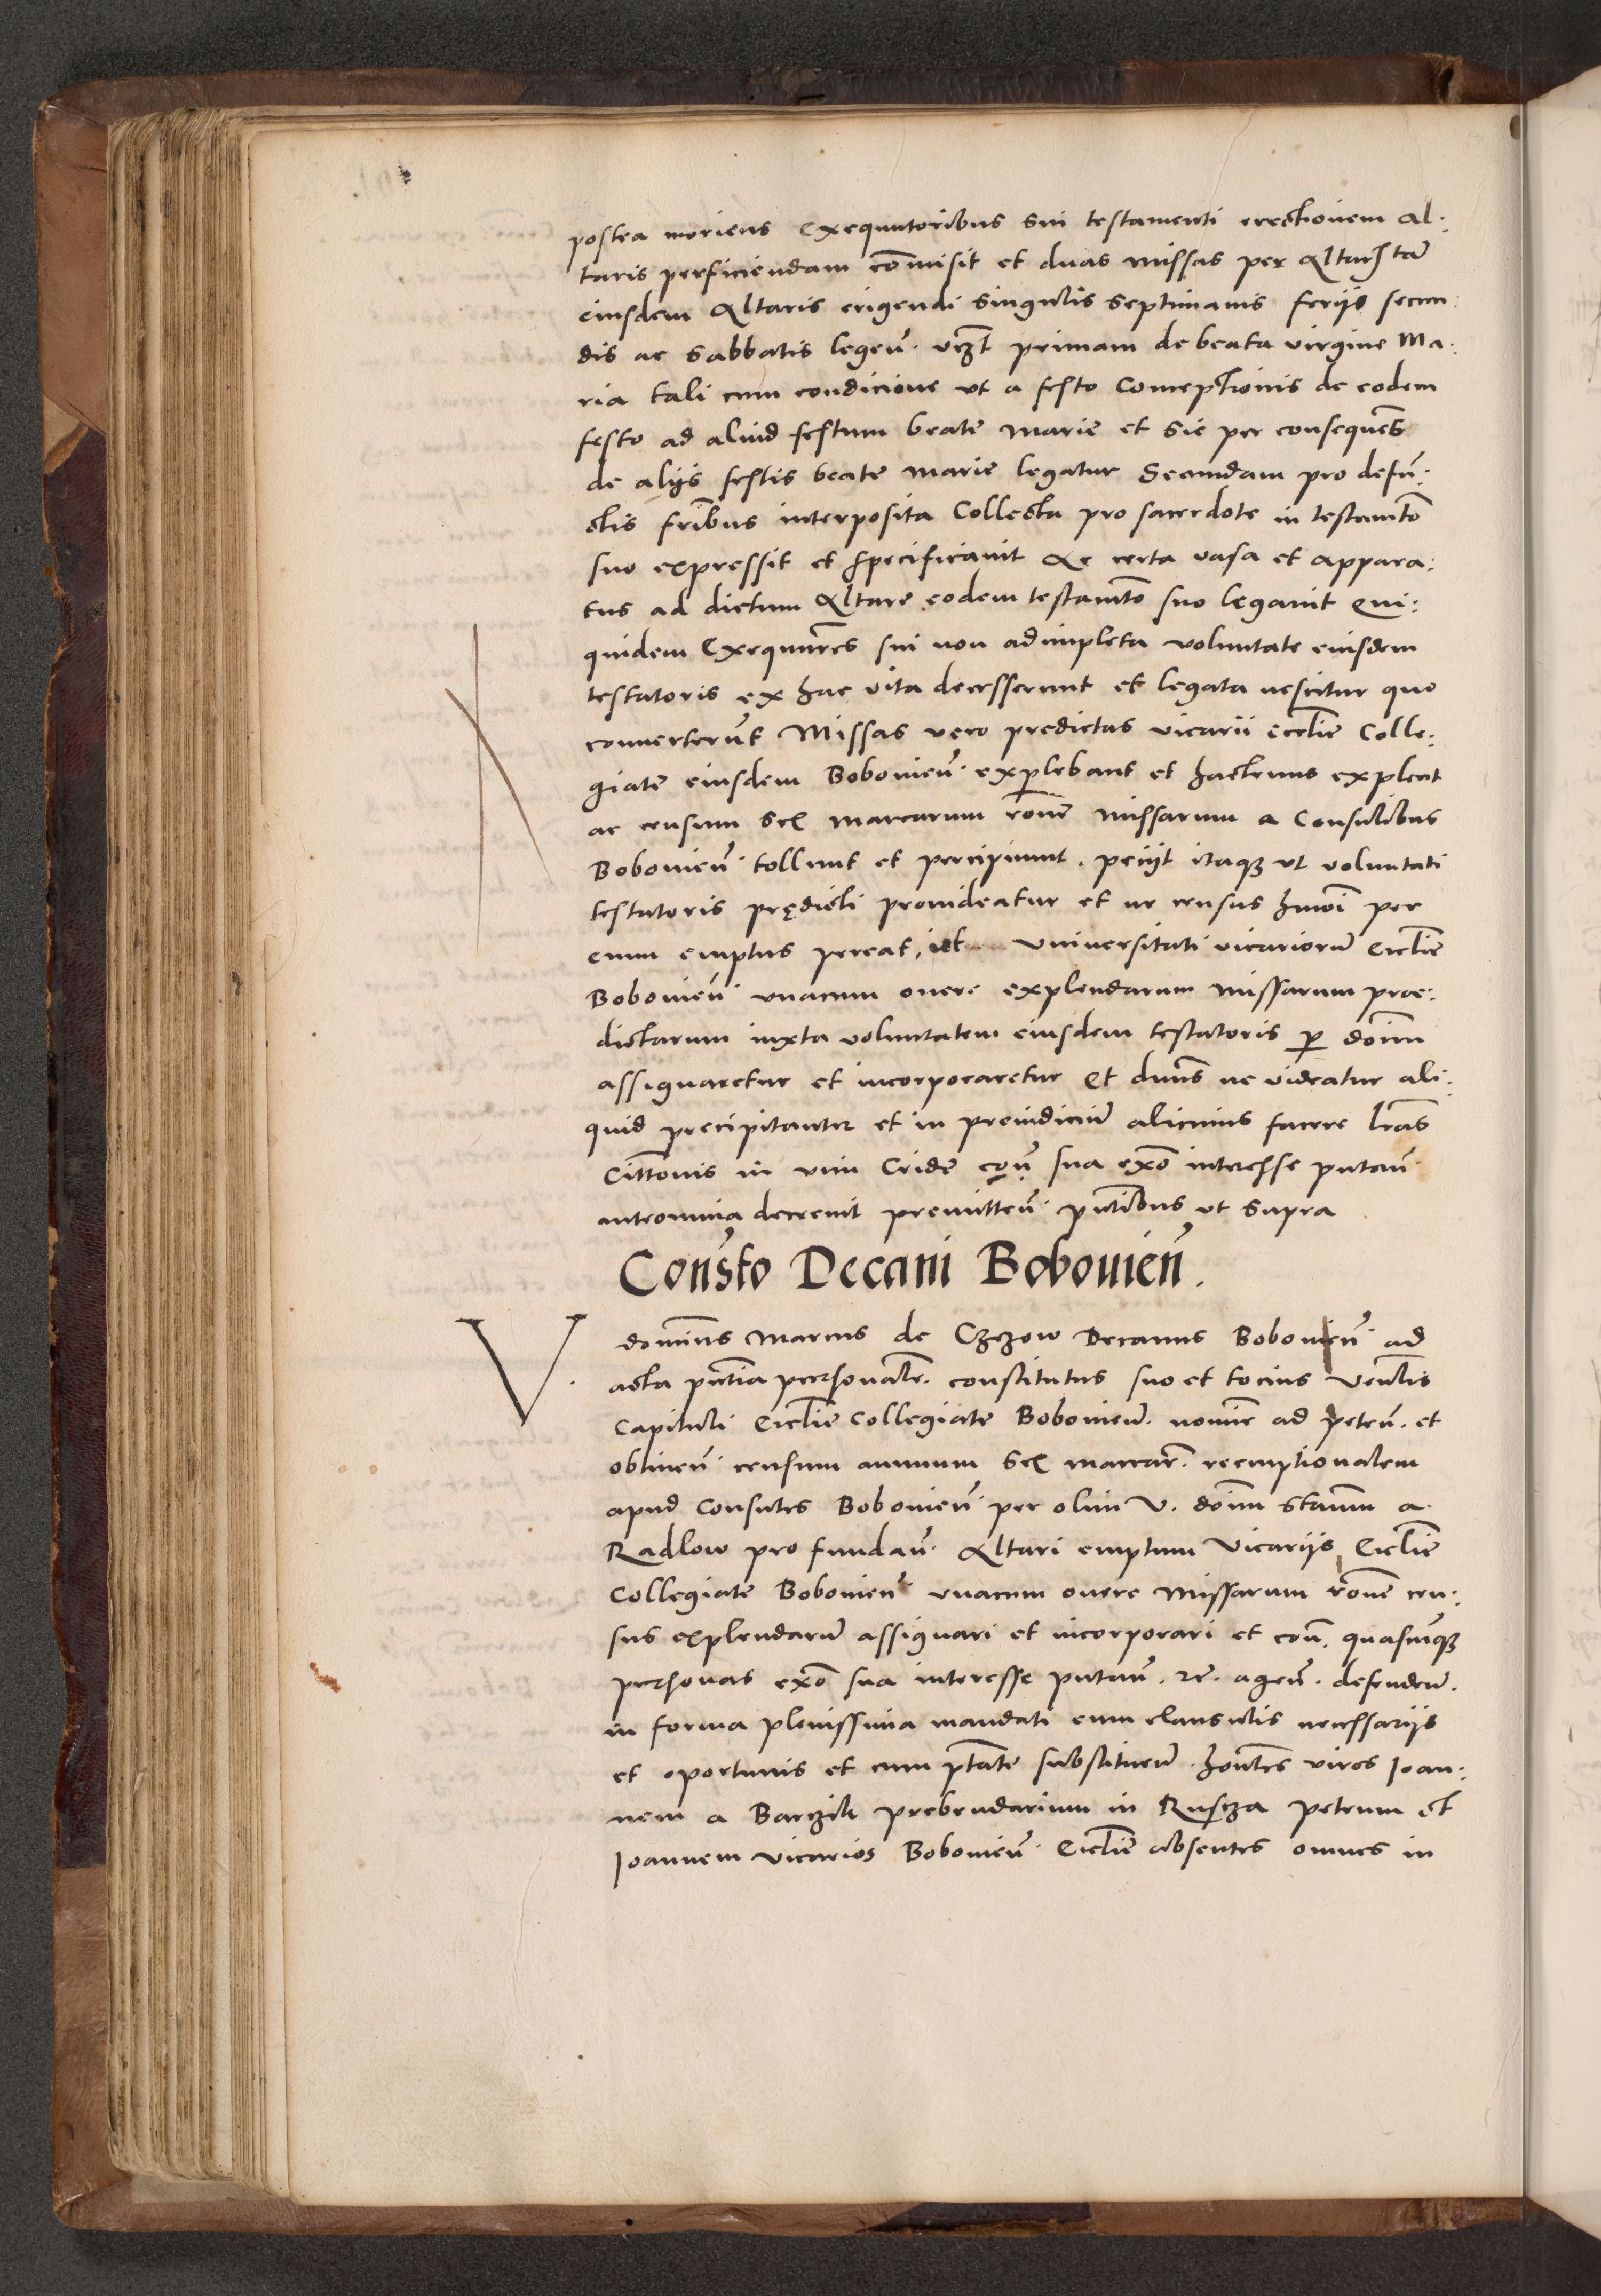 postea moriens Exequutoribus sui testamenti erectionem al:
taris perficiendam cōmisit et duas missas per Altaristā
eiusdem Altaris erigendi singulis septimanis ferijs secun:
dis ac sabbatis legeñ. vczt primam de beata virgine Ma:
ria tali cum condicione vt a festo Conceptionis de eodem
festo ad aliud festum beate Marie et sic per consequēs
de alijs festis beate Marie legatur Secundam pro defū:
ctis fribus interposita Collecta pro sacerdote in testamto
suo expressit et specificauit Ac certa vasa et appara:
tus ad dictum Altare eodem testamto suo legauit Qui:
quidem Exequutres sui non adimpleta voluntate eiusdem
testatoris ex hac vita decesserunt et legata nescitur quo
conuerterūt Missas vero predictas vicarii eccłie Colle:
giate eiusdem Bobouieñ. explebant et hactenus explent
ac censum sex marcarum rōne missarum a Consulibus
Bobouieñ. tollunt et percipiunt. peciit itaqȝ vt voluntati
testatoris prędicti prouideatur et ne census hmōi per
eum emptus pereat, Universitati vicariorū Eccłie
Bobouieñ. vnacum onere explendarum missarum prae:
dictarum iuxta voluntatem eiusdem testatoris ꝑ dōim
assignaretur et incorporaretur Et dnus ne videatur ali:
quid precipitanter et in preiudiciū alicuius facere lrās
Cittōnis in vim Cride coñ. sua exō interesse putañ.
antromina decreuit premitteñ. pntibus vt supra
Consto Decani Bobouieñ.
V. dominus Marcus de Czczow Decanus Bobouieñ. ad
acta pntia personałe. constitutus suo et tocius Venlis
Capituli Eccłie Collegiate Bobouieñ. nomine ad peteñ. et
obtineñ. censum annuum sex marcar. reemptionalem
apud Consules Bobouieñ. per olim V. dōim Stanm a
Radlow pro fundañ. Altari emptum Vicarijs Eccłie
Collegiate Bobouieñ. vnacum onere missarum rōne cen:
sus explendarū assignari et incorporari et coñ. quascūqȝ
personas exō sua interesse putañ. rē. ageñ. defendeñ.
in forma plenissima mandati cum clausulis necessarijs
et oportunis et cum ptate substitueñ. honētes viros Joan:
nem a Barczik prebendarium in Rusczza petrum et
Joannem vicarios Bobouieñ. Eccłie absentes omnes in